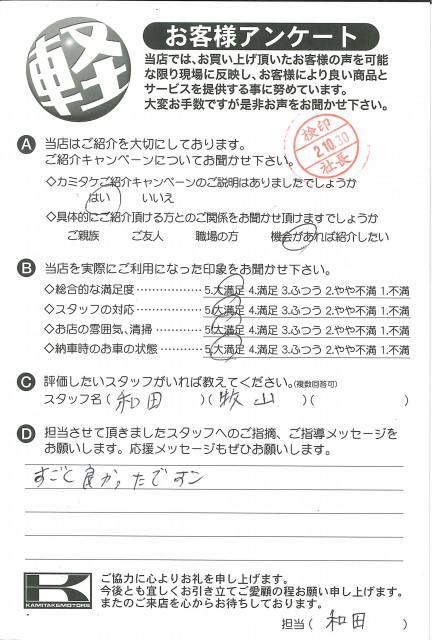 軽
お客様アンケート
当店では、お買い上げ頂いたお客様の声を可能
な限り現場に反映し、お客様により良い商品と
サービスを提供する事に努めています。
大変お手数ですが是非お声をお聞かせ下さい。
検印
2.10.30
社長
A 当店はご紹介を大切にしております。
ご紹介キャンペーンについてお聞かせ下さい。
◇カミタケご紹介キャンペーンのご説明はありましたでしょうか
はい いいえ
◇具体的にご紹介頂ける方とのご関係をお聞かせ頂けますでしょうか
ご親族 ご友人 職場の方 機会があれば紹介したい
B 当店を実際にご利用になった印象をお聞かせ下さい。
◇総合的な満足度 ……………… 5.大満足 4.満足 3.ふつう 2.やや不満 1.不満
◇スタッフの対応 ……………… 5.大満足 4.満足 3.ふつう 2.やや不満 1.不満
◇お店の雰囲気、清掃 ………… 5.大満足 4.満足 3.ふつう 2.やや不満 1.不満
◇納車時のお車の状態 ………… 5.大満足 4.満足 3.ふつう 2.やや不満 1.不満
C 評価したいスタッフがいれば教えてください。(複数回答可)
スタッフ名 ( 和田 ) ( 牧山 ) ( )
D 担当させて頂きましたスタッフへのご指摘、ご指導メッセージを
お願します。応援メッセージもぜひお願いします。
すごく良かったです
K
KAMITAKEMOTORS
ご協力に心よりお礼を申し上げます。
今後とも宜しくお引き立てご愛顧の程お願い申し上げます。
またのご来店を心からお待ちしております。
担当 ( 和田 )